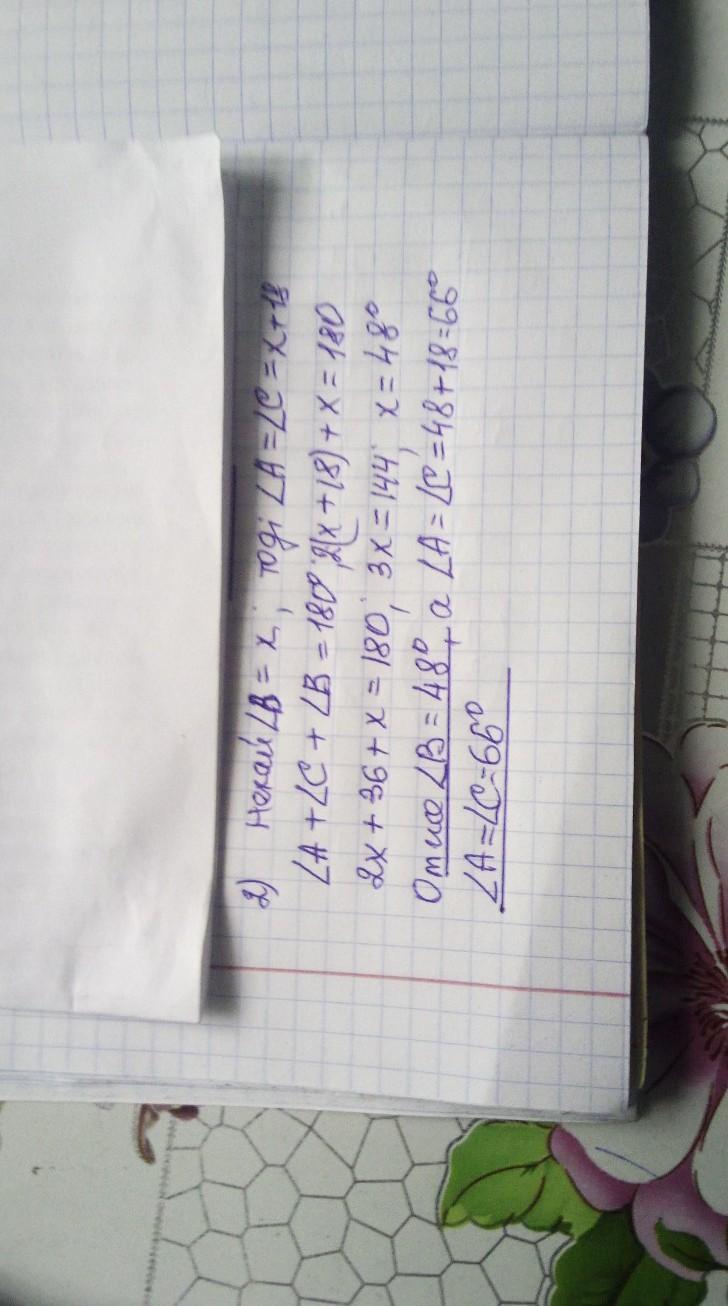 2) Нехай ∠B = x, тоді ∠A = ∠C = x+18
∠A + ∠C + ∠B = 180°; 2(x + 18) + x = 180
2x + 36 + x = 180; 3x = 144; x = 48°
Отже ∠B = 48°, а ∠A = ∠C = 48 + 18 = 66°
∠A = ∠C = 66°